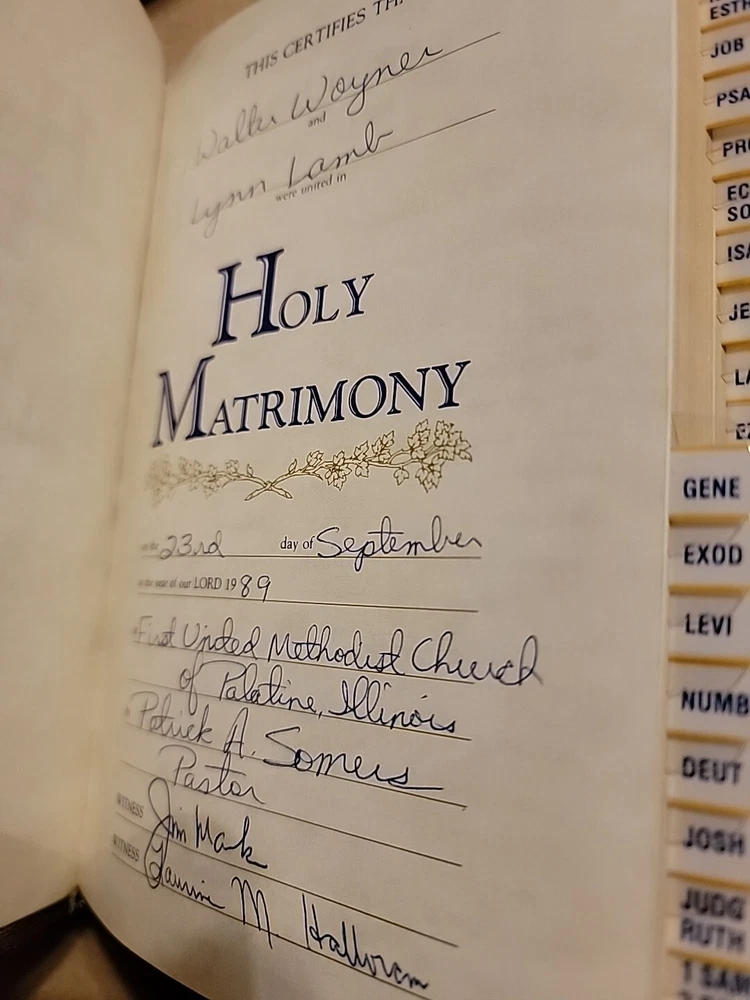 THIS CERTIFIES TH
Walter Woyner
and
Lynn Lamb
were united in
HOLY
MATRIMONY
on the 23rd day of September
in the year of our LORD 1989
First United Methodist Church
of Palatine, Illinois
Patrick A. Somers
Pastor
WITNESS Jim Mark
WITNESS Laurine M Halloran
ESTH
JOB
PSA
PR
EC
SO
ISA
JE
LA
EZ
GENE
EXOD
LEVI
NUMB
DEUT
JOSH
JUDG
RUTH
1 SAM